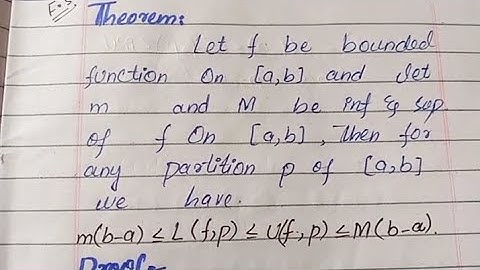 Theorem:
Let f be bounded
function on [a,b] and let
m and M be inf & sup
of f on [a,b], Then for
any partition p of [a,b]
we have.
m(b-a) ≤ L(f,p) ≤ U(f,p) ≤ M(b-a).
Proof:-